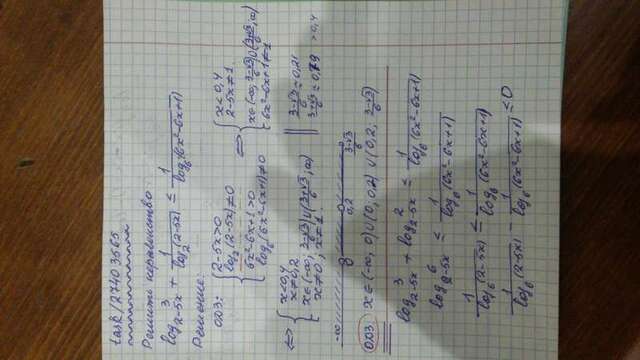 task/27403565
Решить неравенство
log_{2-5x} 3 + 1/log_2 (2-5x) ≤ 1/log_6 (6x²-6x+1)
Решение:
ОДЗ: { 2-5x>0 ; log_2 (2-5x)≠0 ; 6x²-6x+1>0 ; log_6 (6x²-6x+1)≠0 ⇔ { x<0,4 ; 2-5x≠1. ; x∈(-∞; (3-√3)/6)∪((3+√3)/6; ∞) ; 6x²-6x+1≠1
⇔ { x<0,4 ; x≠0,2 ; x∈(-∞; (3-√3)/6)∪((3+√3)/6; ∞) ; x≠0; x≠1. || (3-√3)/6 ≈0,21 ; (3+√3)/6 ≈0,79 >0,4
-∞ 0 0,2 (3-√3)/6
ОДЗ: x∈(-∞, 0)∪(0, 0,2)∪(0,2; (3-√3)/6)
log_{2-5x} 3 + log_{2-5x} 2 ≤ 1/log_6 (6x²-6x+1)
log_{2-5x} 6 ≤ 1/log_6 (6x²-6x+1)
1/log_6 (2-5x) ≤ 1/log_6 (6x²-6x+1)
1/log_6 (2-5x) - 1/log_6 (6x²-6x+1) ≤0